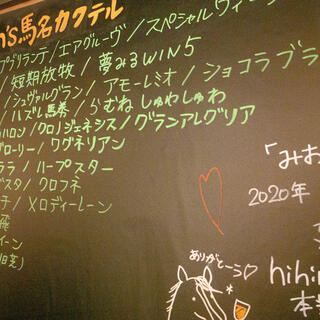 's 馬名カクテル
プグランテ/エアグルーヴ/スペシャルウィ
/短期放牧/夢みるWIN5
/シュヴァルグラン/アモーレミオ/ショコラブラ
/ハズレ馬券/らむねしゅわしゅわ
ハロン/クロノジェネシス/グランアレグリア
グローリー/ワグネリアン
ララ/ハープスター
ゴスタ/クロフネ
/メロディーレーン
飛
イーン
「みお
2020年
ありがとーう
hihin
本